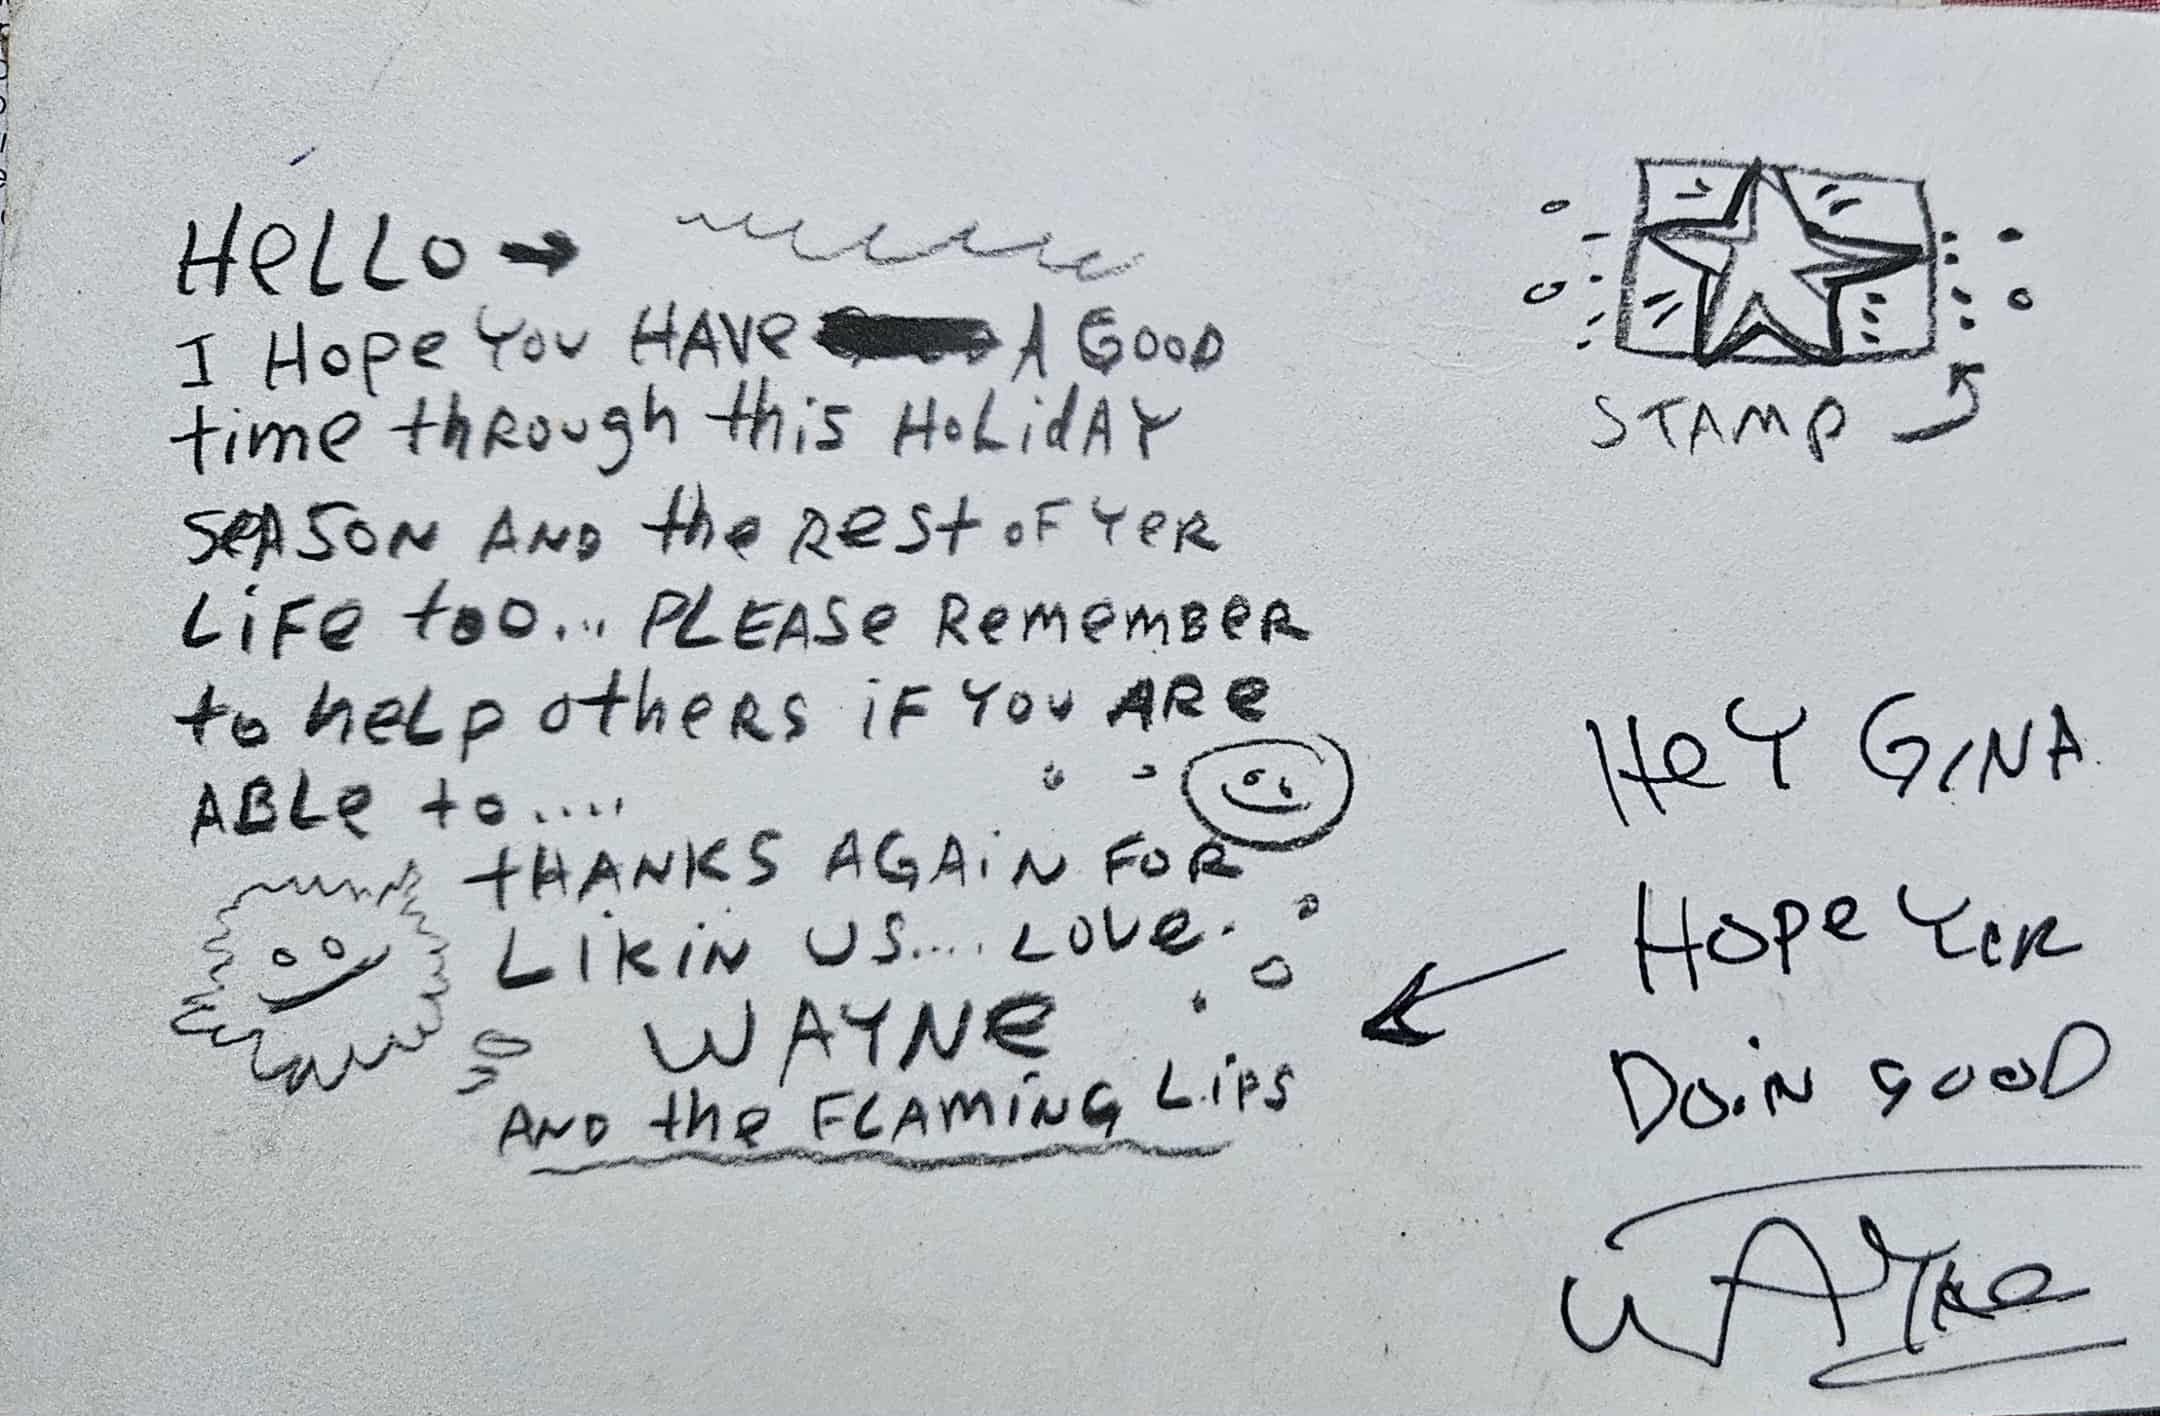 Hello →
I Hope You HAVe A GOOD
time thRough this HoLidAY
SeASON AND the Rest oF YeR
LiFe too... PLEASe RemembeR
to heLp otheRS iF YOU ARe
ABLe to....
tHANKS AGAiN FOR
LikiN US.... LOVe.
WAYNe
AND the FLAMiNG LiPS
STAMP
HeY GiNA
Hope YeR
DoiN gooD
WAYNe